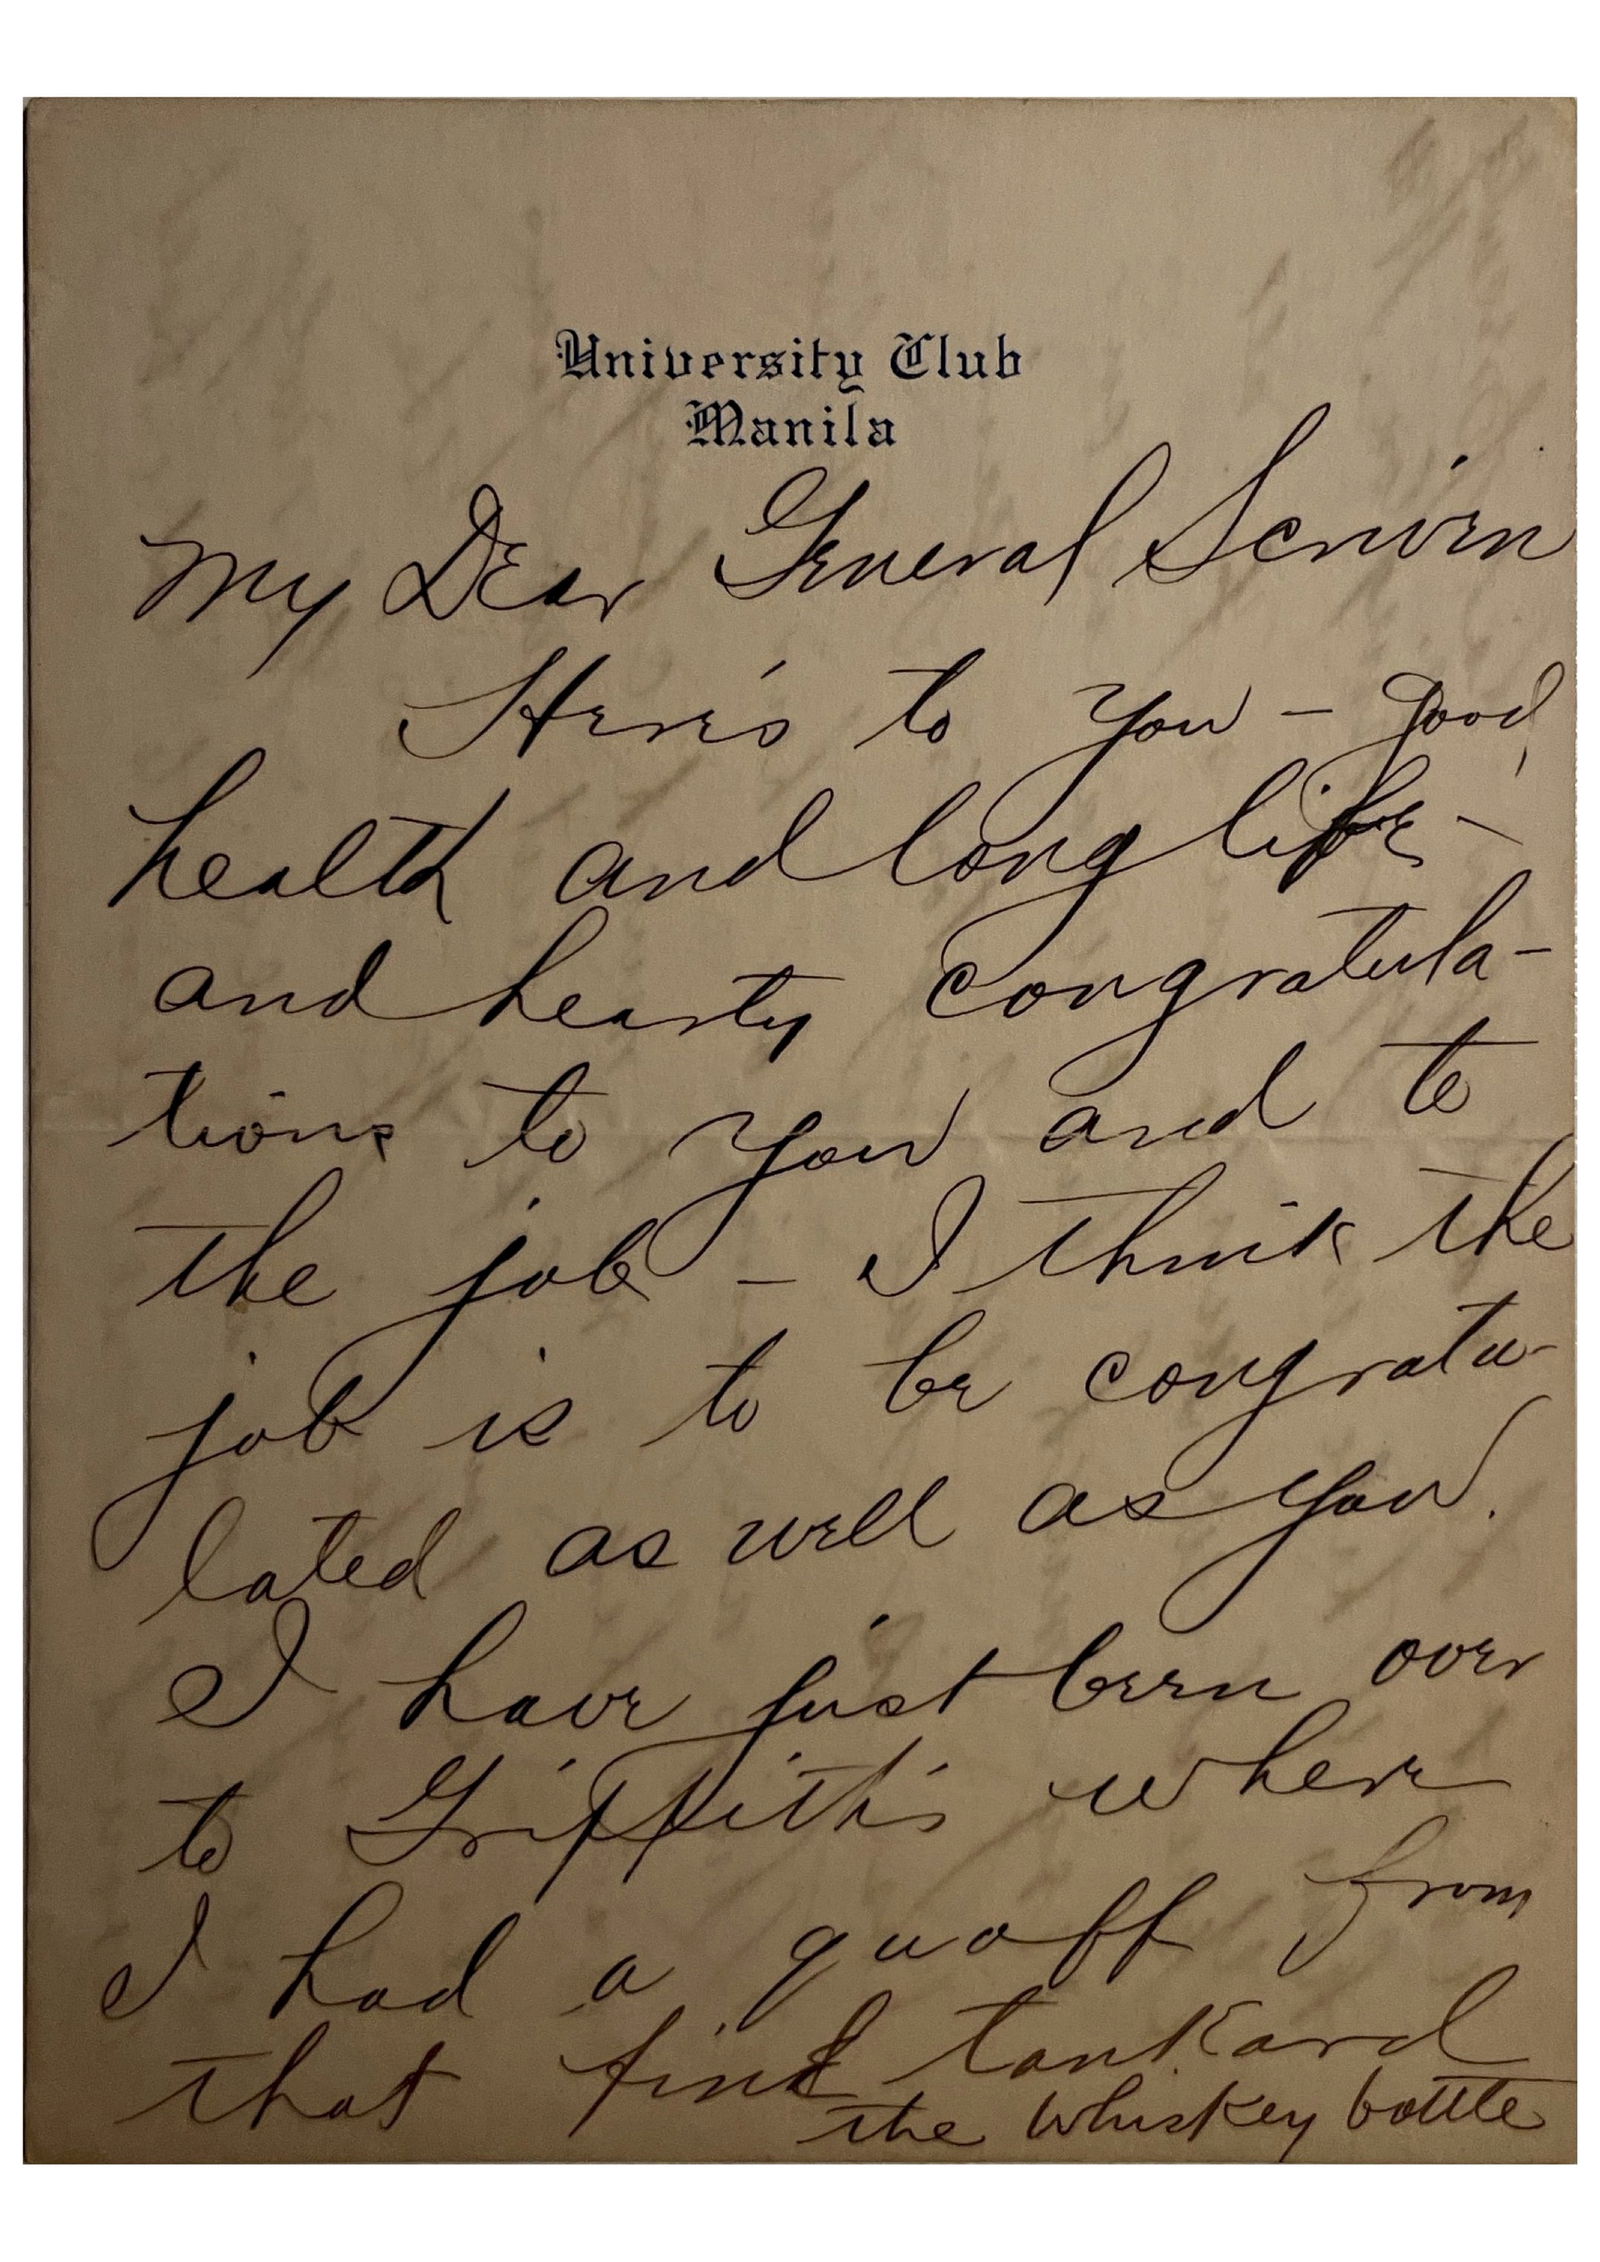 University Club
Manila
My Dear General Scriven
Here's to you - good
health and long life -
and hearty congratula-
tions to you and to
the job - I think the
job is to be congratu-
lated as well as you.
I have just been over
to Griffith's where
I had a quaff from
that fine tankard
the whiskey bottle